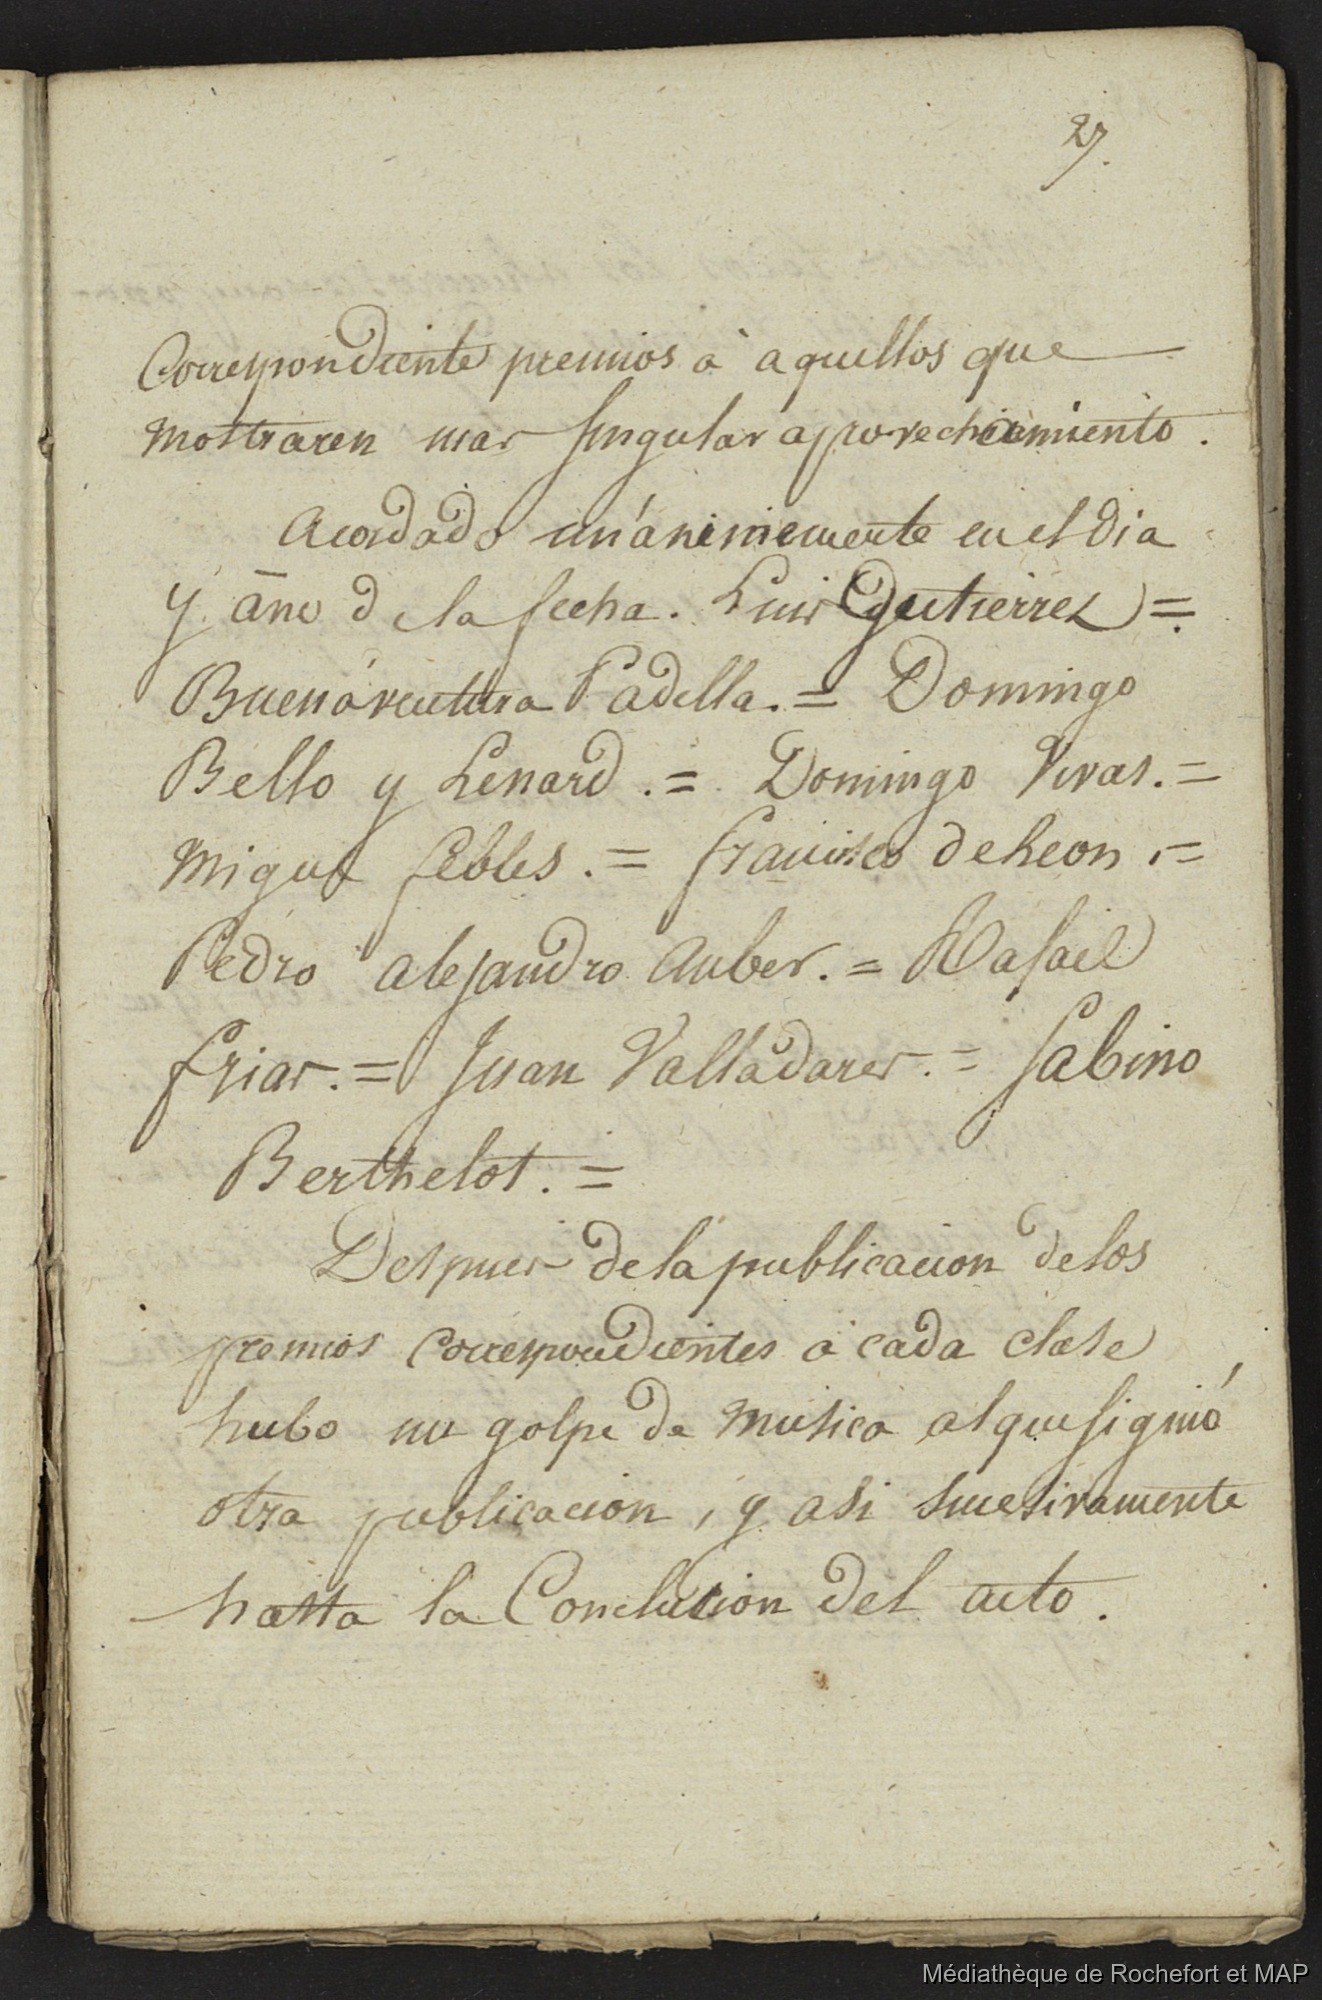 27.
Correspondiente premios à aquellos que
mostraren mas singular aprovechamiento.
Acordado unánimemente en el dia
y año de la fecha. Luis Gutierrez =
Buenaventura Padilla. = Domingo
Bello y Lenard. = Domingo Vivas. =
Miguel febles. = francisco de Leon. =
Pedro Alejandro Auber. = Rafael
friar. = Juan Valladares. = Sabino
Berthelot. =
Despues de la publicacion de los
premios correspondientes à cada clase
hubo un golpe de musica al que siguió
otra publicacion, y asi sucesivamente
hasta la Conclusion del acto.
Médiathèque de Rochefort et MAP